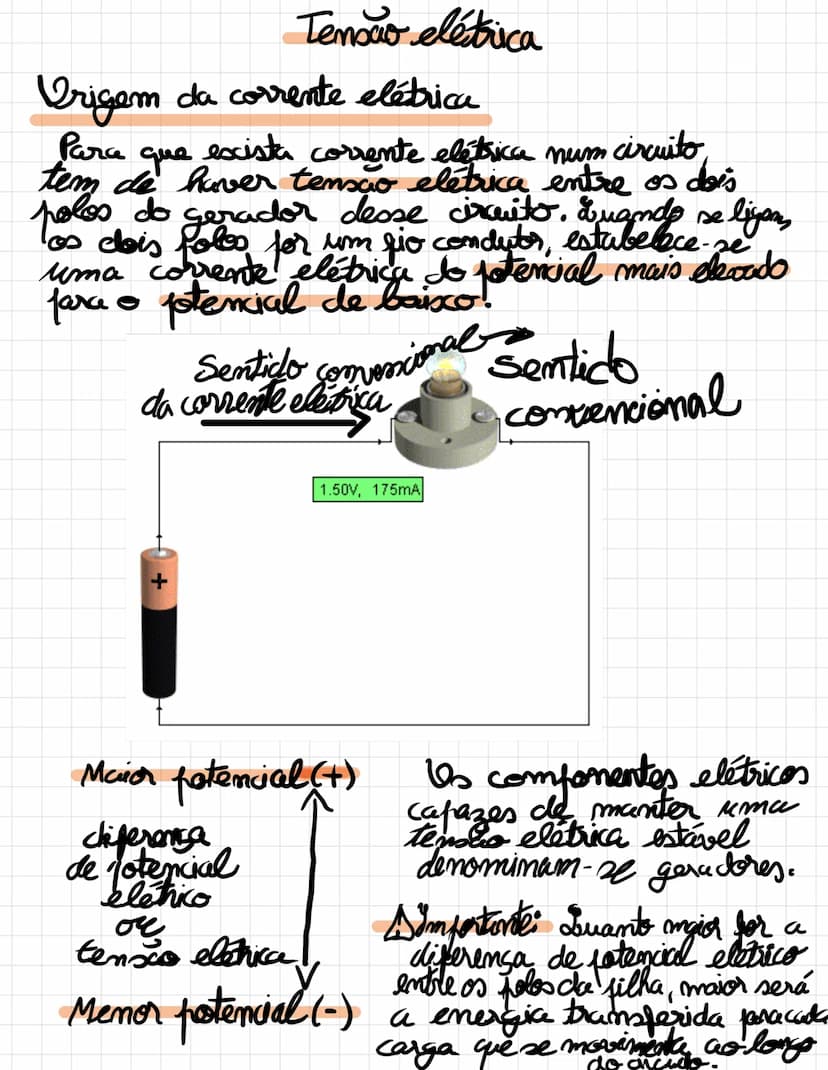 Tensão elétrica
Origem da corrente elétrica
Para que exista corrente elétrica num circuito
tem de haver tensão elétrica entre os dois
polos do gerador desse circuito. Quando se ligam,
os dois polos por um fio condutor, estabelece-se
uma corrente elétrica do potencial mais elevado
para o potencial de baixo.
Sentido convencional
da corrente elétrica
Sentido
convencional
1.50V, 175mA
+
Maior potencial (+)
diferença
de potencial
elétrico
ou
tensão elétrica
Menor potencial (-)
Os componentes elétricos
capazes de manter uma
tensão elétrica estável
denominam-se geradores.
⚠Importante: Quanto maior for a
diferença de potencial elétrico
entre os polos da pilha, maior será
a energia transferida para cada
carga que se movimenta ao longo
do circuito.